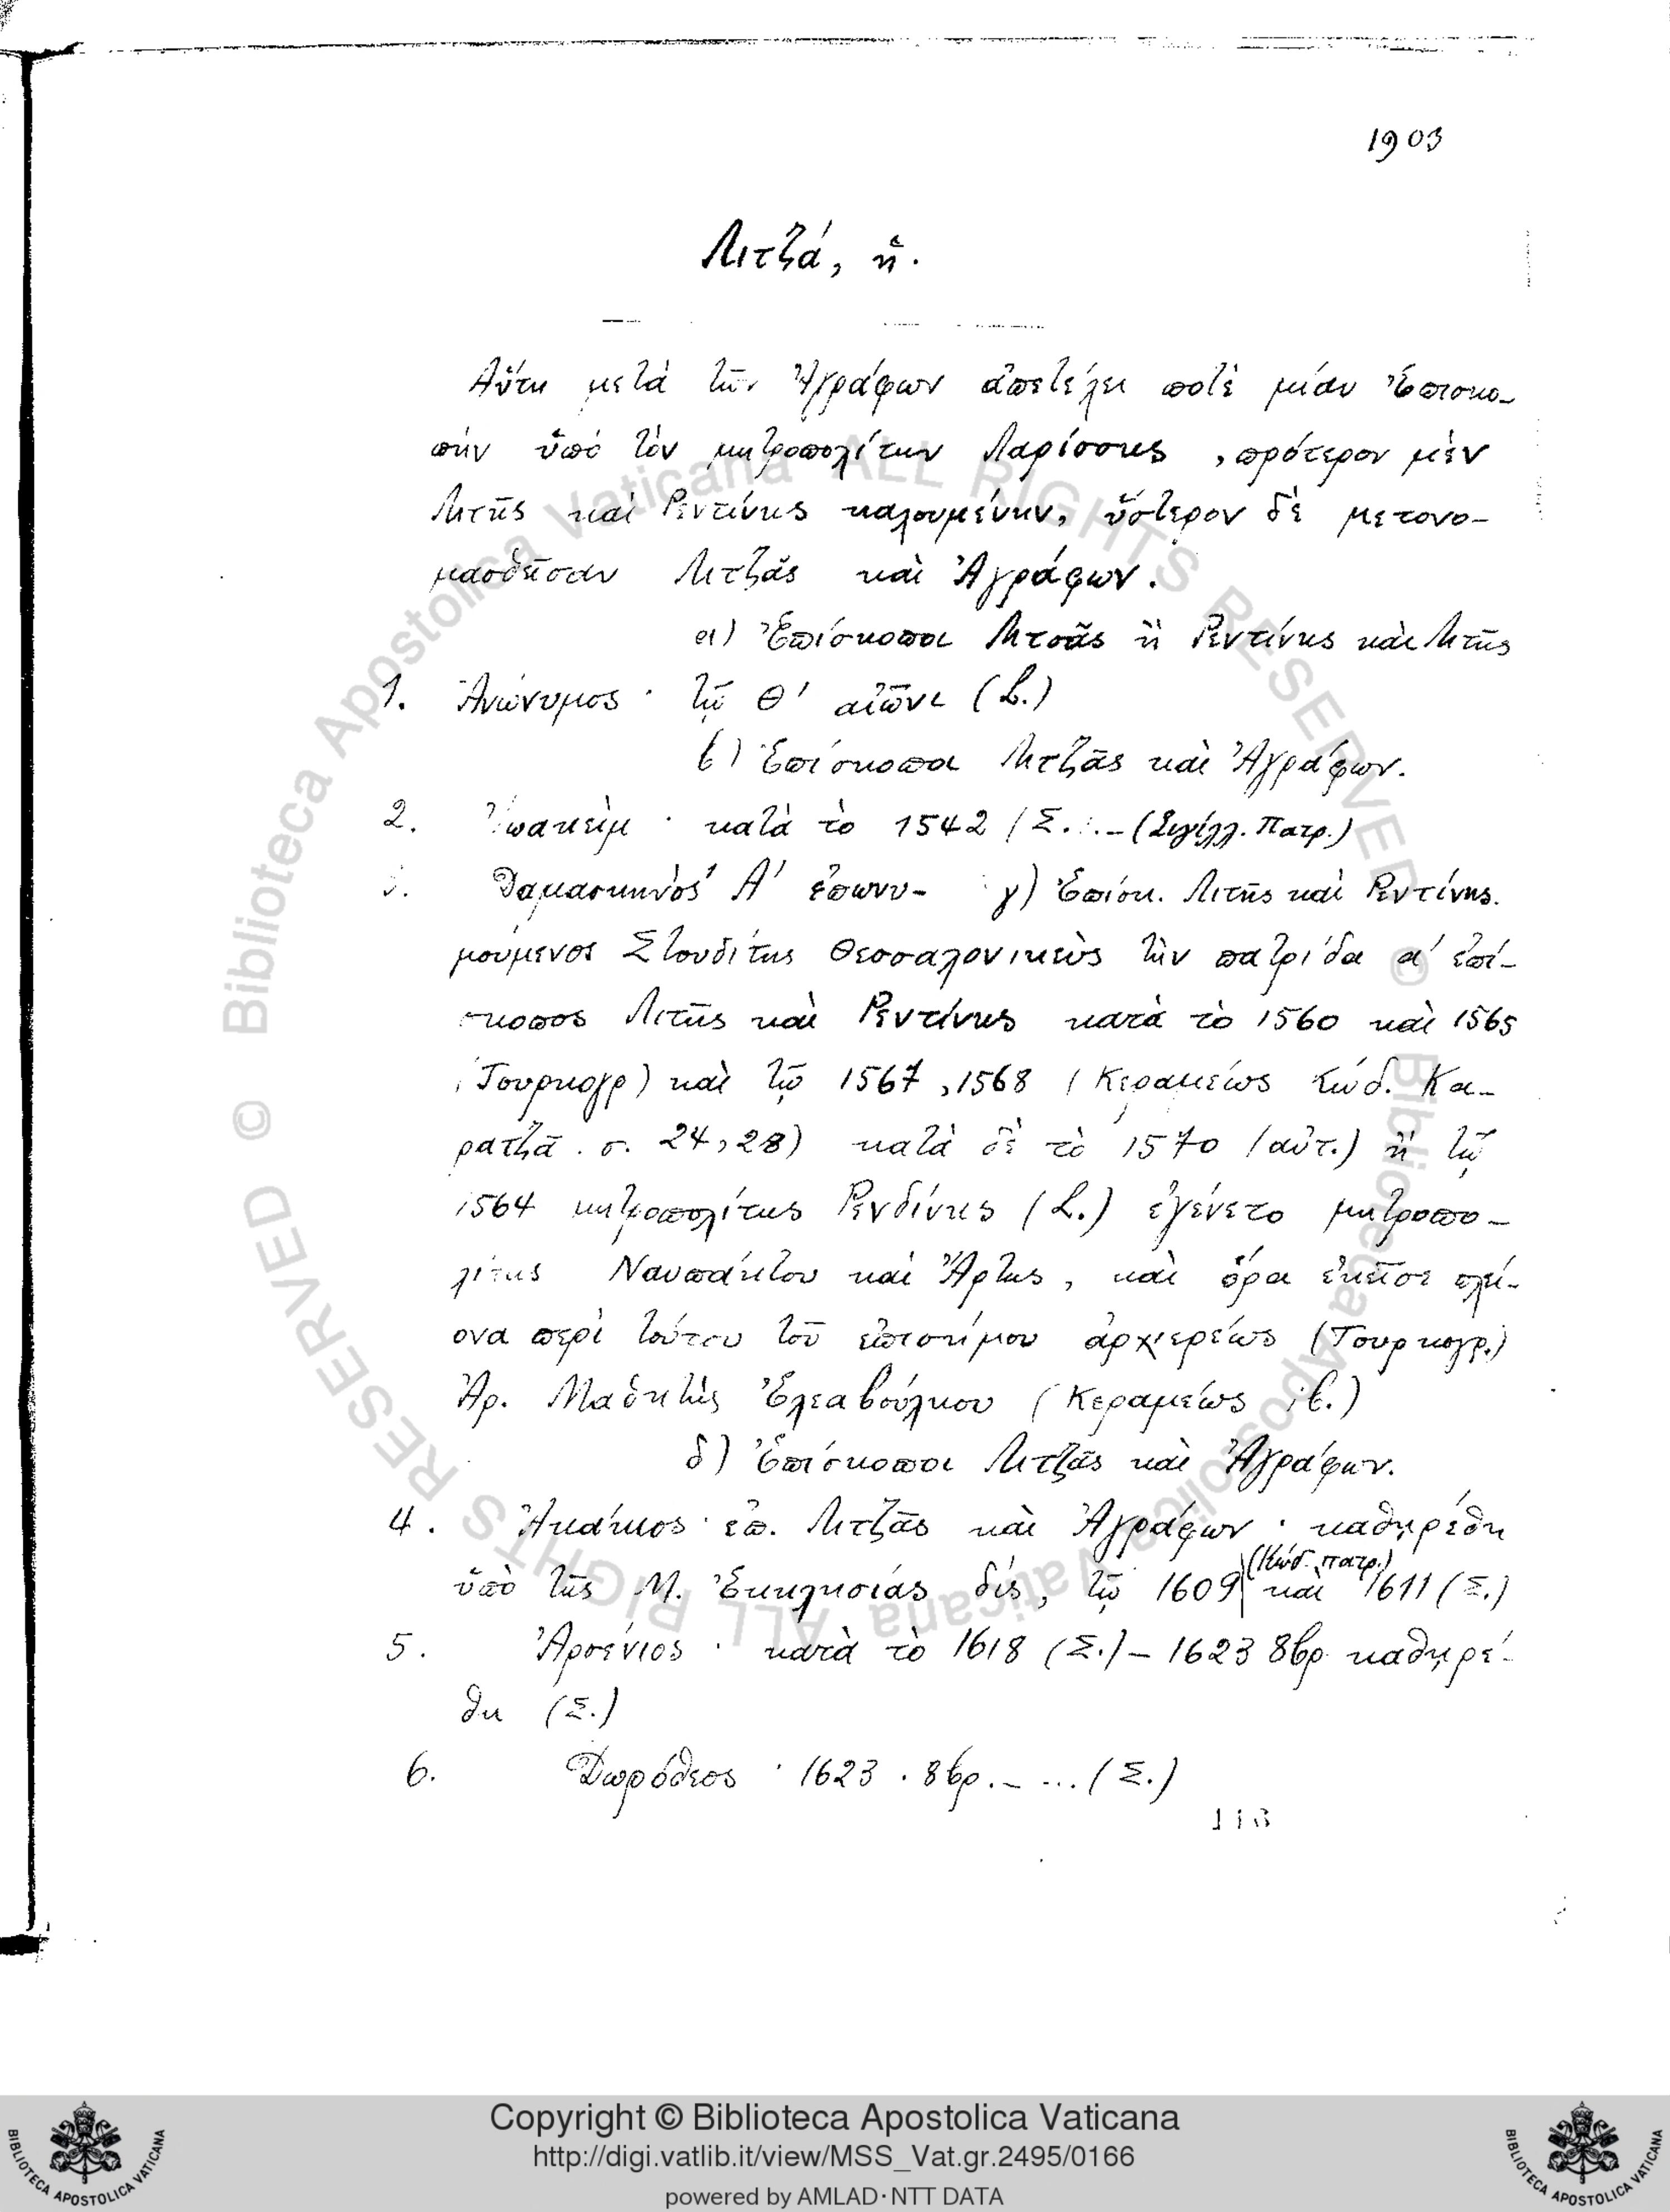 1903
Λιτζά, ἡ.
Αὕτη μετὰ τῶν Ἀγράφων ἀπετέλει ποτὲ μίαν Ἐπισκο-
πὴν ὑπὸ τὸν μητροπολίτην Λαρίσσης, πρότερον μὲν
Λιτῆς καὶ Ρεντίνης καλουμένην, ὕστερον δὲ μετονο-
μασθεῖσαν Λιτζᾶς καὶ Ἀγράφων.
α) Ἐπίσκοποι Λιτσᾶς ἢ Ρεντίνης καὶ Λιτῆς
1. Ἀνώνυμος · τῷ Θ' αἰῶνι (L.)
β) Ἐπίσκοποι Λιτζᾶς καὶ Ἀγράφων.
2. Ἰωακεὶμ · κατὰ τὸ 1542 (Σ. .. – (Σιγίλλ. Πατρ.)
3. Δαμασκηνὸς Α' ἐπωνυ- γ) Ἐπίσκ. Λιτῆς καὶ Ρεντίνης.
μούμενος Στουδίτης Θεσσαλονικεὺς τὴν πατρίδα α' ἐπί-
σκοπος Λιτῆς καὶ Ρεντίνης κατὰ τὸ 1560 καὶ 1565
(Τουρκογρ) καὶ τῷ 1567, 1568 (Κεραμέως Κώδ. Κα-
ρατζᾶ. σ. 24, 28) κατὰ δὲ τὸ 1570 (αὐτ.) ἢ τῷ
1564 μητροπολίτης Ρενδίνης (L.) ἐγένετο μητροπο-
λίτης Ναυπάκτου καὶ Ἄρτης, καὶ ὅρα ἐκεῖσε πλεί-
ονα περὶ τούτου τοῦ ἐπισήμου ἀρχιερέως (Τουρκογρ.)
Ἀρ. Μαθητὴς Ἐλεαβούλκου (Κεραμέως ιβ.)
δ) Ἐπίσκοποι Λιτζᾶς καὶ Ἀγράφων.
4. Ἀκάκιος · ἐπ. Λιτζᾶς καὶ Ἀγράφων · καθῃρέθη
(Κώδ. πατρ.)
ὑπὸ τῆς Μ. Ἐκκλησίας δίς, τῷ 1609 καὶ 1611 (Σ.)
5. Ἀρσένιος · κατὰ τὸ 1618 (Σ.) – 1623 8βρ καθῃρέ-
θη (Σ.)
6. Δωρόθεος · 1623 . 8βρ. – ... (Σ.)
113
Copyright © Biblioteca Apostolica Vaticana
http://digi.vatlib.it/view/MSS_Vat.gr.2495/0166
powered by AMLAD·NTT DATA
BIBLIOTECA APOSTOLICA VATICANA
BIBLIOTECA APOSTOLICA VATICANA
© Biblioteca Apostolica Vaticana ALL RIGHTS RESERVED
© Biblioteca Apostolica Vaticana ALL RIGHTS RESERVED